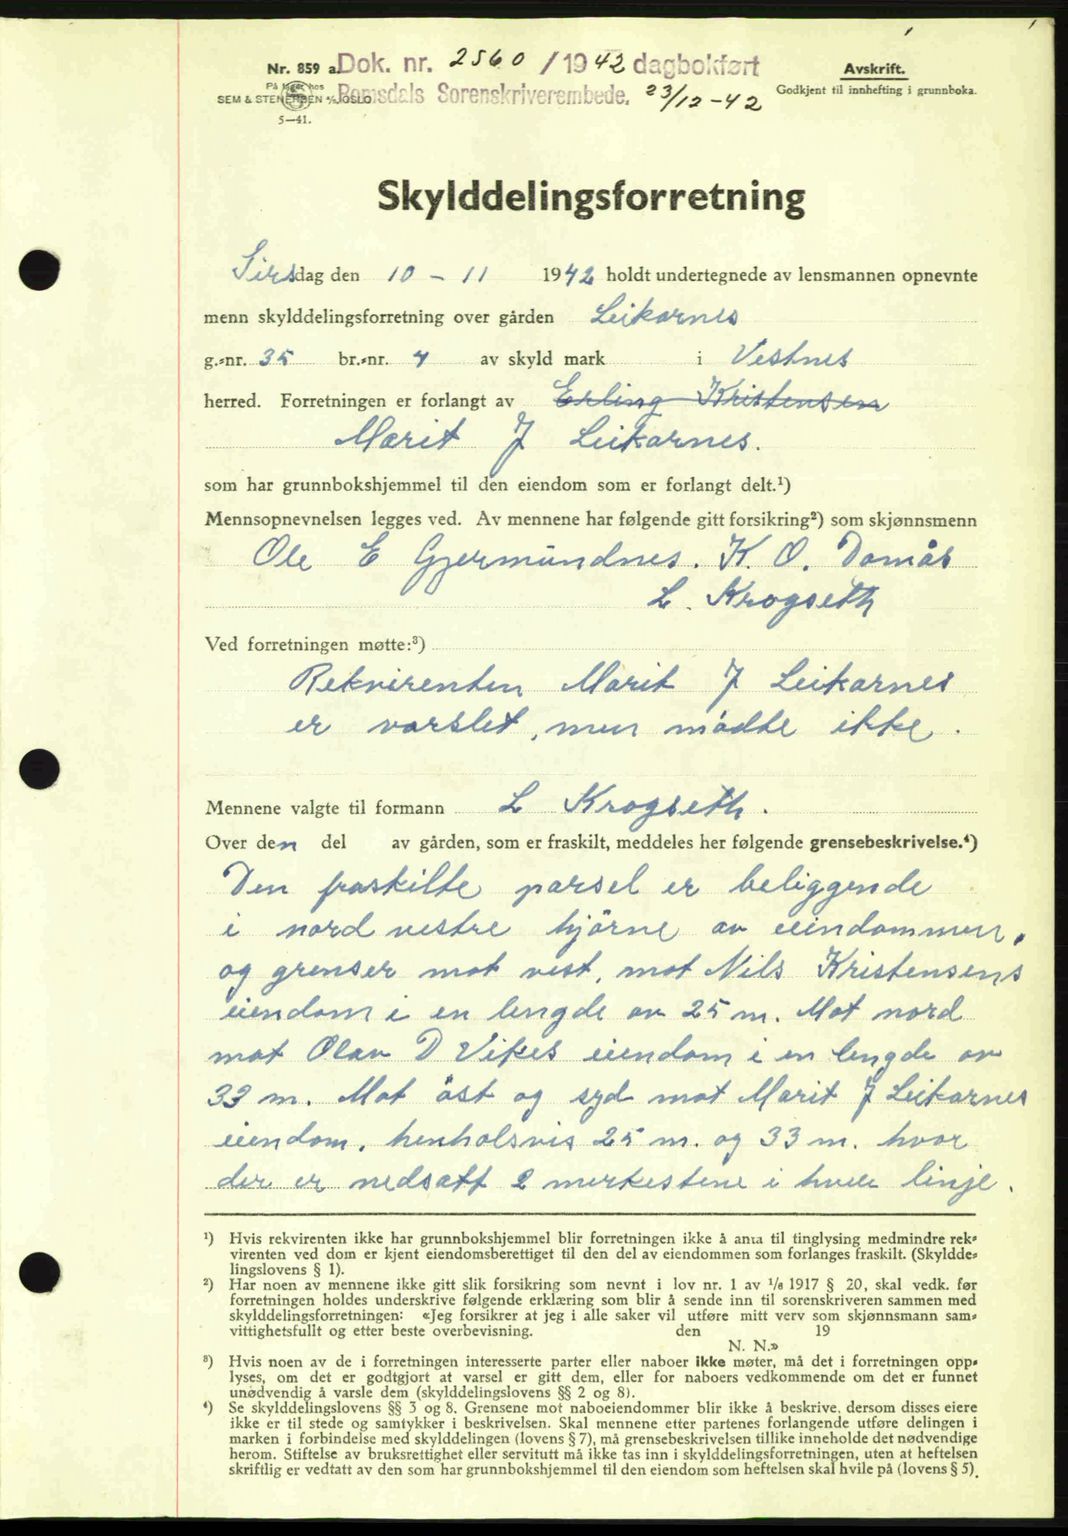 Nr. 859 a. Dok. nr. 2560 / 1942 dagbokført
På lager hos
SEM & STENERSEN A/S OSLO. Romsdals Sorenskriverembede. 23/12-42
5—41.
Avskrift.
Godkjent til innhefting i grunnboka.
Skylddelingsforretning
Tirsdag den 10 - 11 1942 holdt undertegnede av lensmannen opnevnte
menn skylddelingsforretning over gården Leikarnes
g.-nr. 35 br.-nr. 4 av skyld mark i Vestnes
herred. Forretningen er forlangt av Erling Kristensen
Marit J Leikarnes.
som har grunnbokshjemmel til den eiendom som er forlangt delt.¹)
Mennsopnevnelsen legges ved. Av mennene har følgende gitt forsikring²) som skjønnsmenn
Ole E Gjermundnes. K. O. Damås
L. Krogseth
Ved forretningen møtte:³)
Rekvirenten Marit J Leikarnes
er varslet, men mödte ikke.
Mennene valgte til formann L Krogseth.
Over den del av gården, som er fraskilt, meddeles her følgende grensebeskrivelse.⁴)
Den fraskilte parsel er beliggende
i nord vestre hjörne av eiendommen,
og grenser mot vest, mot Nils Kristensens
eiendom i en lengde av 25 m. Mot nord
mot Olav D Vikes eiendom i en lengde av
33 m. Mot öst og syd mot Marit J Leikarnes
eiendom, henholsvis 25 m. og 33 m. hvor
der er nedsatt 2 merkestene i hver linje.
¹) Hvis rekvirenten ikke har grunnbokshjemmel blir forretningen ikke å anta til tinglysing medmindre rek-
virenten ved dom er kjent eiendomsberettiget til den del av eiendommen som forlanges fraskilt. (Skyldde-
lingslovens § 1).
²) Har noen av mennene ikke gitt slik forsikring som nevnt i lov nr. 1 av ¹/₆ 1917 § 20, skal vedk. før
forretningen holdes underskrive følgende erklæring som blir å sende inn til sorenskriveren sammen med
skylddelingsforretningen: «Jeg forsikrer at jeg i alle saker vil utføre mitt verv som skjønnsmann sam-
vittighetsfullt og etter beste overbevisning. den 19
N. N.»
³) Hvis noen av de i forretningen interesserte parter eller naboer ikke møter, må det i forretningen opp-
lyses, om det er godtgjort at varsel er gitt dem, eller for naboers vedkommende om det er funnet
unødvendig å varsle dem (skylddelingslovens §§ 2 og 8).
⁴) Se skylddelingslovens §§ 3 og 8. Grensene mot naboeiendommer blir ikke å beskrive, dersom disses eiere
ikke er til stede og samtykker i beskrivelsen. Skal mennene etter partenes forlangende utføre delingen i
marken i forbindelse med skylddelingen (lovens § 7), må grensebeskrivelsen tillike inneholde det nødvendige
herom. Stiftelse av bruksrettighet eller servitutt må ikke tas inn i skylddelingsforretningen, uten at heftelsen
skriftlig er vedtatt av den som har grunnbokshjemmel til den eiendom som heftelsen skal hvile på (lovens § 5).